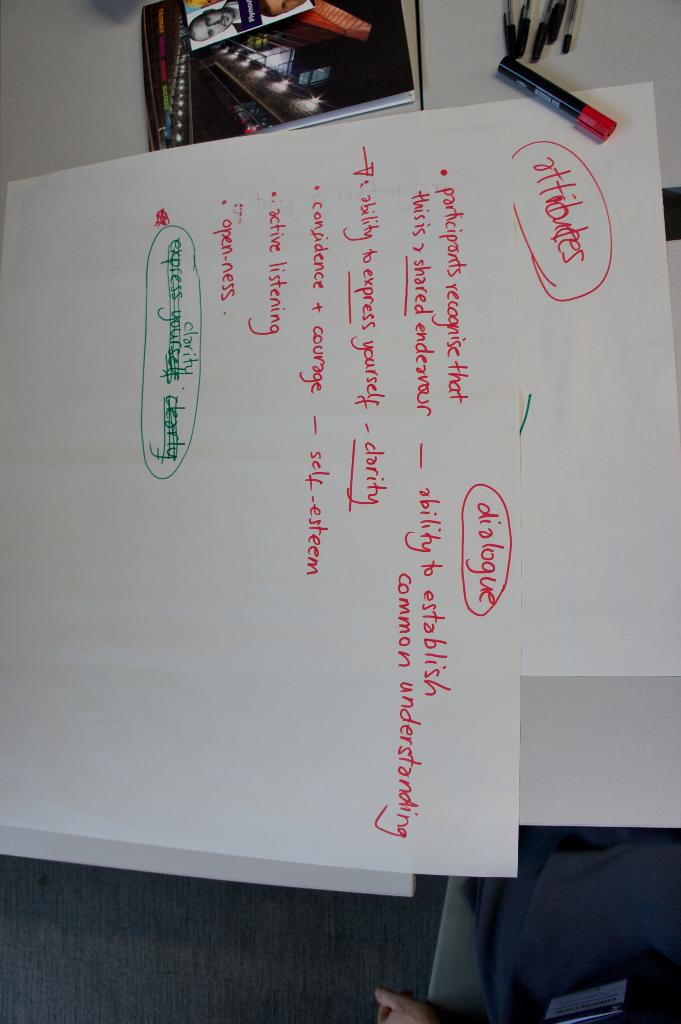 attributes
dialogue
• participants recognise that
this is a shared endeavour — ability to establish
common understanding
→ • ability to express yourself - clarity
• confidence + courage — self-esteem
• active listening
• open-ness.
clarity
express yourself clearly